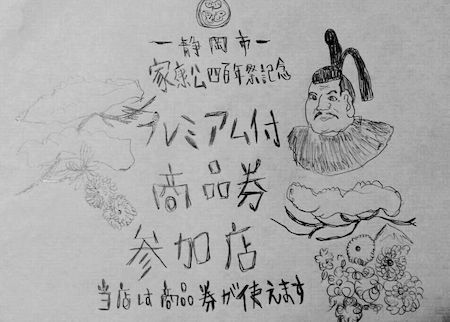 ー静岡市ー
家康公四百年祭記念
プレミアム付
商品券
参加店
当店は商品券が使えます